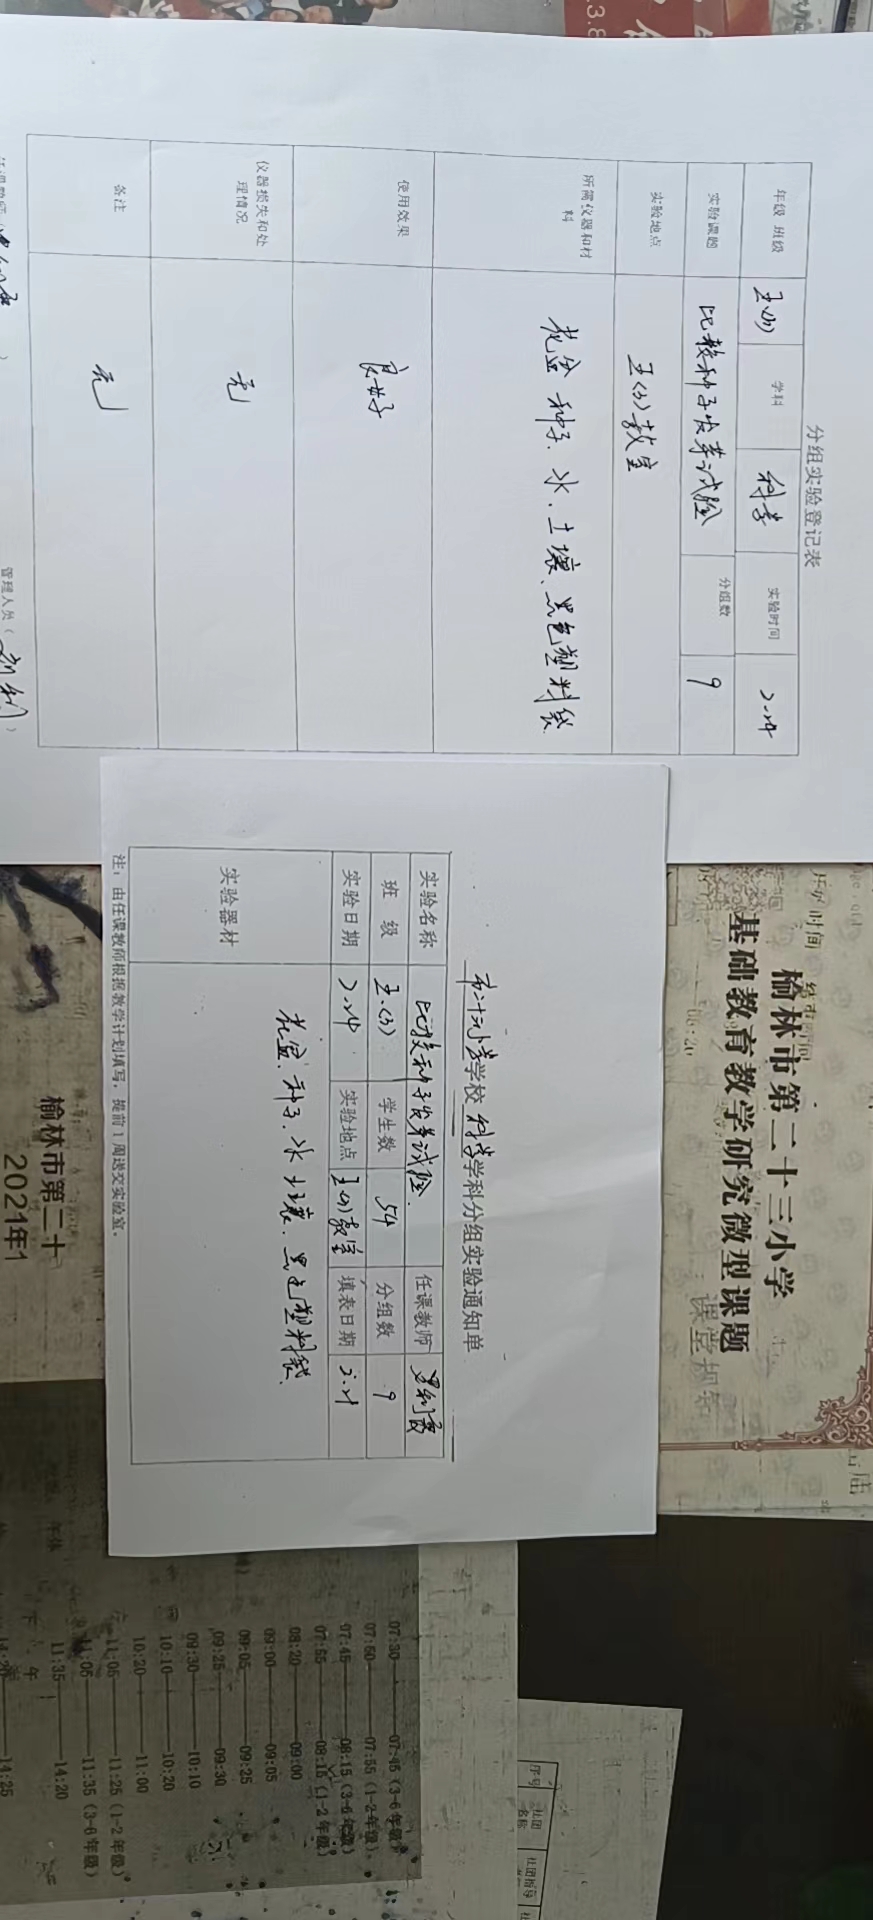 分组实验登记表
年级 班级 五(3) 学科 科学 实验时间 2.24
实验课题 比较种子发芽试验 分组数 9
实验地点 五(3)教室
所需仪器和材料 花盆 种子、水、土壤、黑色塑料袋
使用效果 良好
仪器损失和处理情况 无
备注 无
管理人员(
学校 科学 学科分组实验通知单
实验名称 比较种子发芽试验 任课教师
班 级 五(3) 学生数 54 分组数 9
实验日期 2.24 实验地点 五(3)教室 填表日期 2.21
实验器材 花盆、种子、水 土壤、黑色塑料袋
注：由任课教师根据教学计划填写，提前1周送交实验室。
榆林市第二十三小学
基础教育教学研究微型课题
榆林市第二十
2021年1
07:30——07:45(3-6年级)
07:50——07:55(1-2年级)
07:45——08:15(3-6年级)
07:55——08:15(1-2年级)
08:20——09:00
09:00——09:05
09:05——09:25
09:25——09:30
09:30——10:10
10:10——10:20
10:20——11:00
11:05——11:25(1-2年级)
11:05——11:35(3-6年级)
11:35——14:20
14:25
序号 社团名称 社团指导